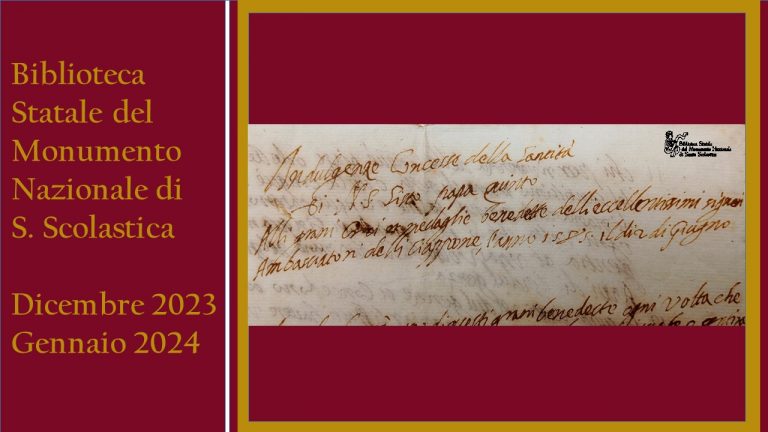 Biblioteca
Statale del
Monumento
Nazionale di
S. Scolastica
Dicembre 2023
Gennaio 2024
Biblioteca Statale
del Monumento Nazionale
di Santa Scolastica
Indulgenze Concesse della Santità
di N. S. Sisto papa quinto
Alli grani Croci et medaglie benedette delli eccellentissimi signori
Ambasciatori delli Giappone, l'anno 1585 il di 2 di Giugno
grani benedecte ogni volta che